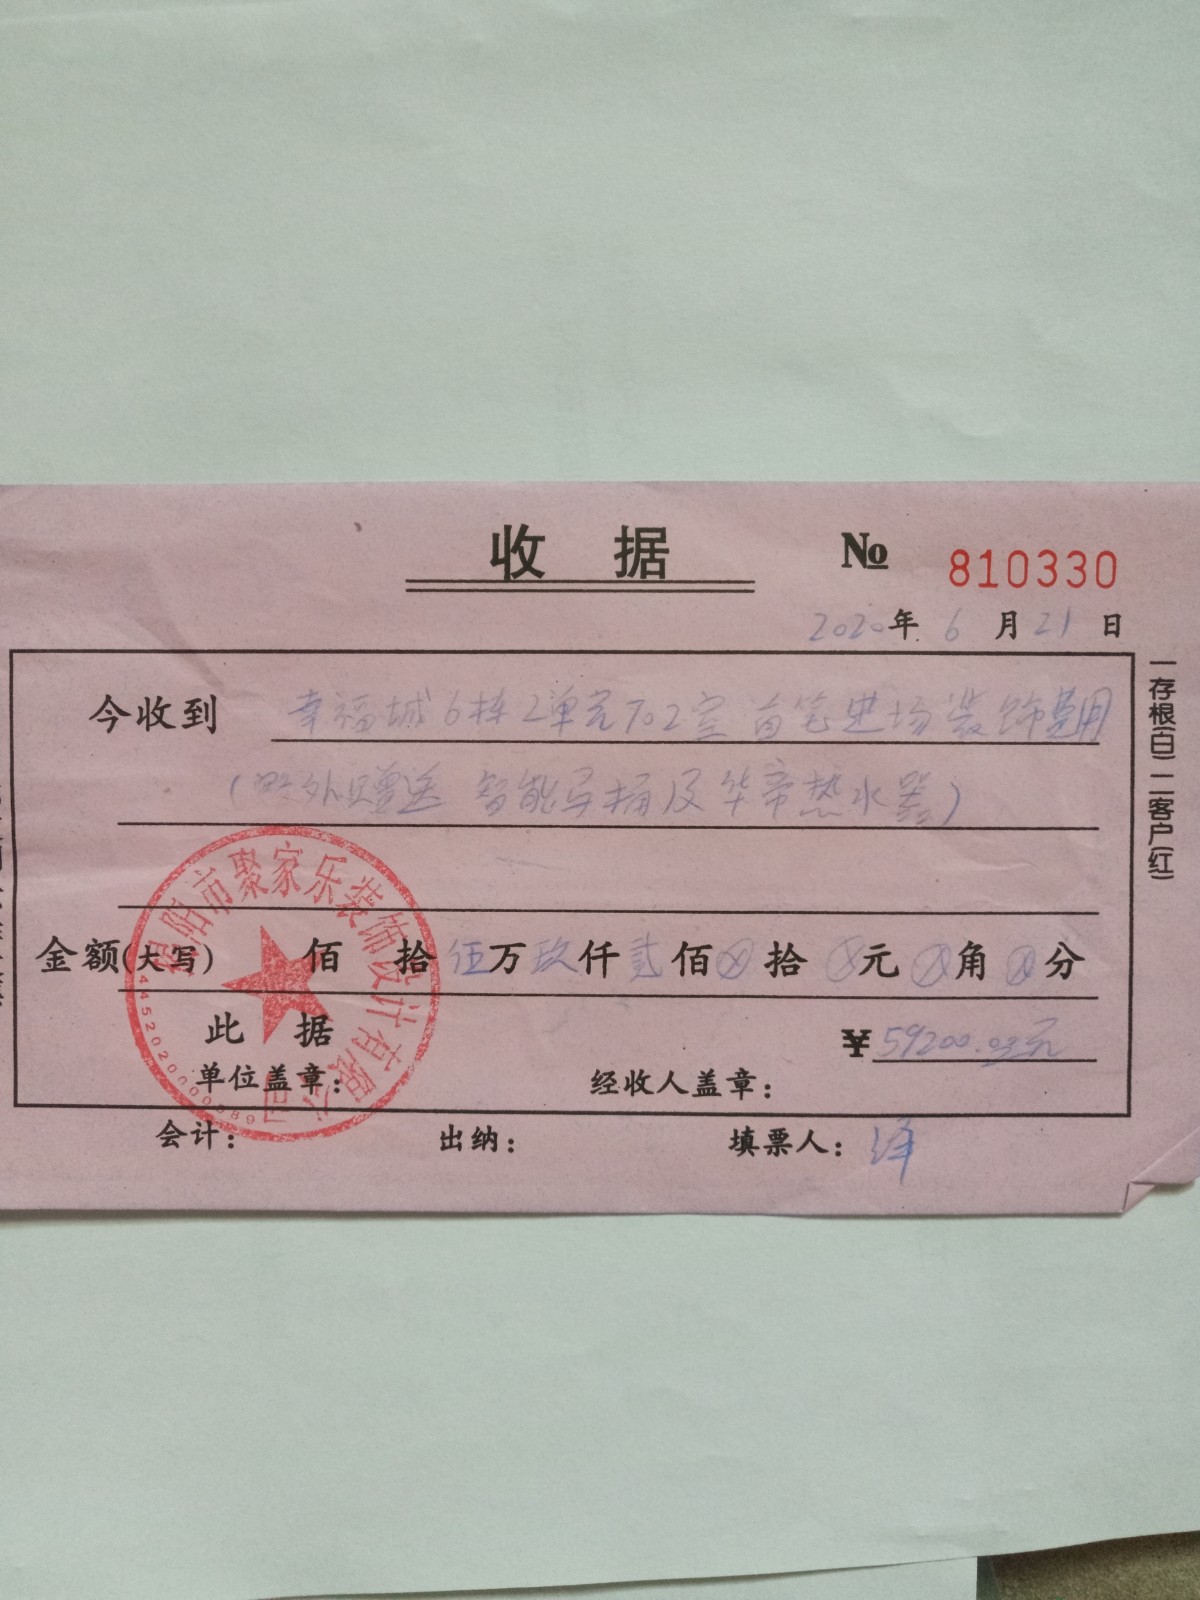 收 据
№ 810330
2020年 6 月 21 日
今收到 幸福城6栋2单元702室 首笔进场装饰费用
(额外赠送 智能马桶及华帝热水器)
金额(大写) 佰 拾 伍万玖仟贰佰⊗拾 ⊗元⊗角⊗分
此 据
¥ 59200.00元
单位盖章: 经收人盖章:
会计: 出纳: 填票人: 泽
一存根(白) 二客户(红)
揭阳市聚家乐装饰设计有限公司